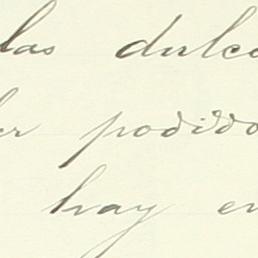 las dulce
er podido
hay en